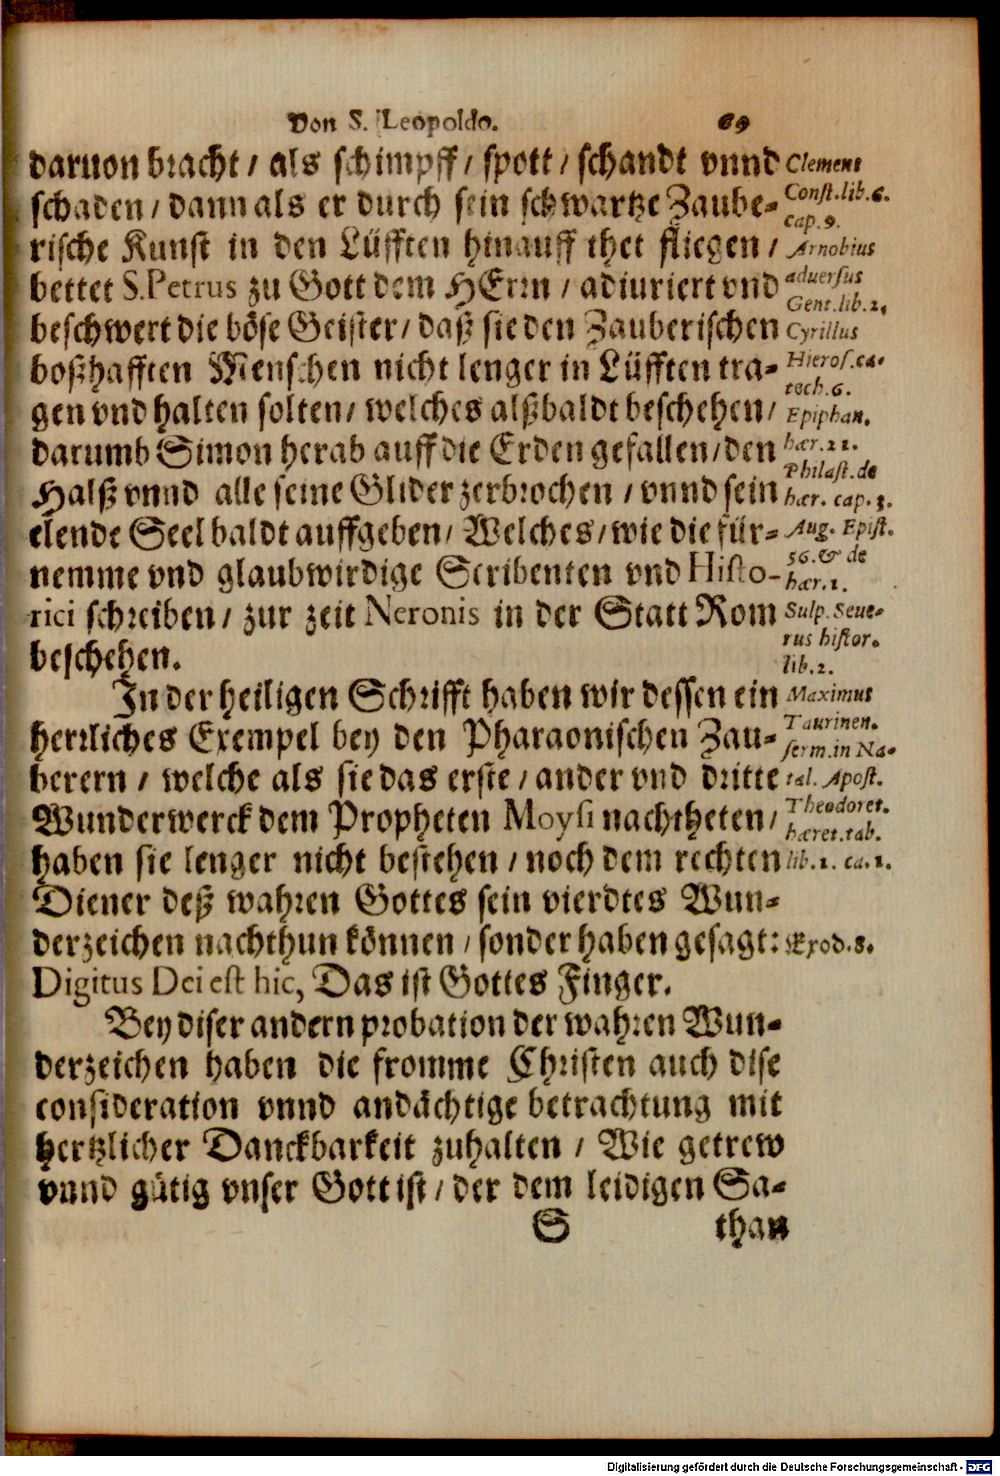 Von S. Leopoldo. 69
daruon bracht / als schimpff / spott / schandt vnnd
schaden / dann als er durch sein schwartze Zaube-
rische Kunst in den Lüfften hinauff thet fliegen /
bettet S. Petrus zu Gott dem HErrn / adiuriert vnd
beschwert die böse Geister / daß sie den Zauberischen
boßhafften Menschen nicht lenger in Lüfften tra-
gen vnd halten solten / welches alßbaldt beschehen /
darumb Simon herab auff die Erden gefallen / den
Halß vnnd alle seine Glider zerbrochen / vnnd sein
elende Seel baldt auffgeben / Welches / wie die für-
nemme vnd glaubwirdige Scribenten vnd Histo-
rici schreiben / zur zeit Neronis in der Statt Rom
beschehen.
In der heiligen Schrifft haben wir dessen ein
herrliches Exempel bey den Pharaonischen Zau-
berern / welche als sie das erste / ander vnd dritte
Wunderwerck dem Propheten Moysi nachtheten /
haben sie lenger nicht bestehen / noch dem rechten
Diener deß wahren Gottes sein vierdtes Wun-
derzeichen nachthun können / sonder haben gesagt:
Digitus Dei est hic, Das ist Gottes Finger.
Bey diser andern probation der wahren Wun-
derzeichen haben die fromme Christen auch dise
consideration vnnd andächtige betrachtung mit
hertzlicher Danckbarkeit zuhalten / Wie getrew
vnnd gütig vnser Gott ist / der dem leidigen Sa-
S than
Clemens
Const. lib. 6.
cap. 9.
Arnobius
aduersus
Gent. lib. 2,
Cyrillus
Hieros. ca-
tech. 6.
Epiphan.
hær. 21.
Philast. de
hær. cap. 3.
Aug. Epist.
36. & de
hær. 1.
Sulp. Seue-
rus histor.
lib. 2.
Maximus
Taurinen.
serm. in Na-
tal. Apost.
Theodoret.
hæret. tab.
lib. 1. ca. 1.
Exod. 8.
Digitalisierung gefördert durch die Deutsche Forschungsgemeinschaft - DFG